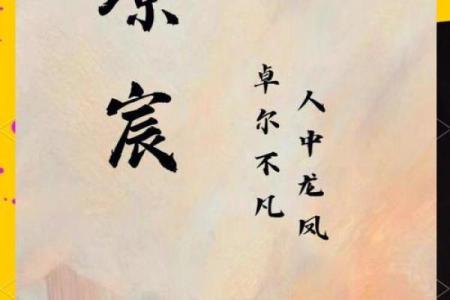 宸
卓尔不凡
人中龙凤